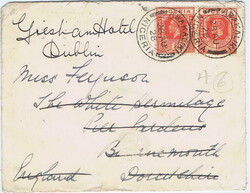 Gresham Hotel
Dublin
Miss Ferguson
The White Hermitage
Bournemouth
Dorsetshire
England
NIGERIA
NIGERIA